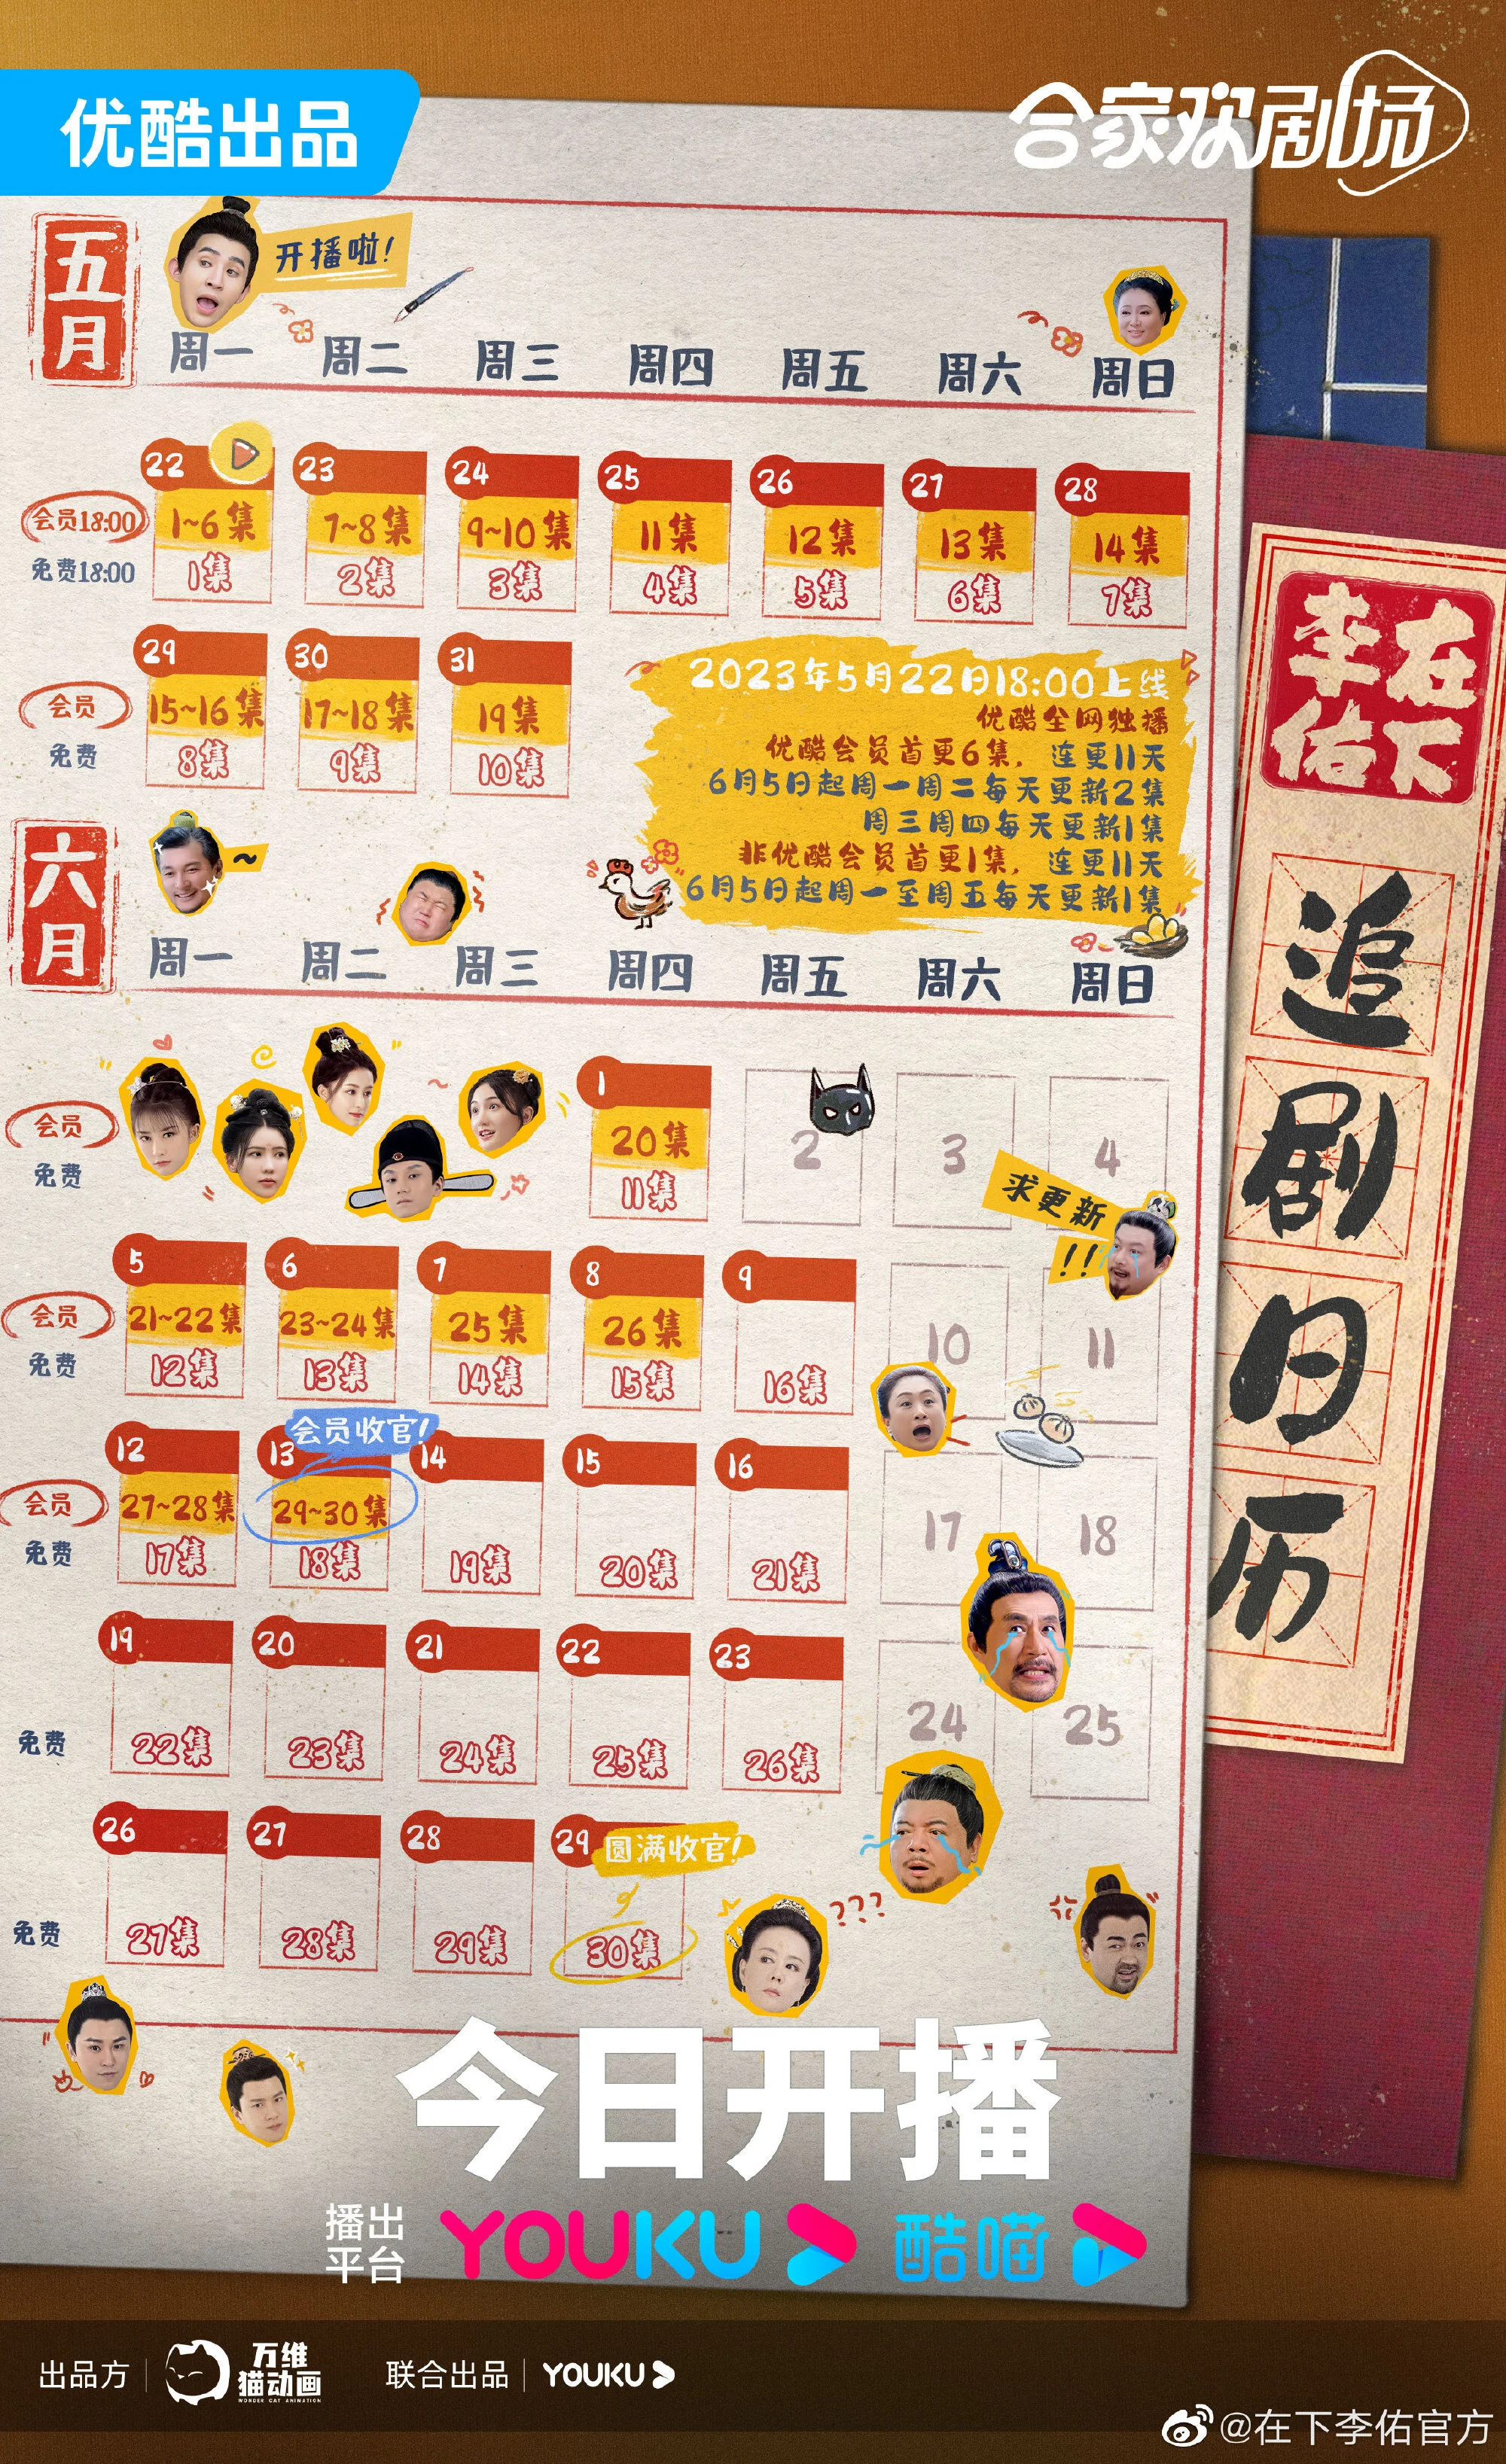 优酷出品
合家欢剧场
五月
开播啦!
周一 周二 周三 周四 周五 周六 周日
22 23 24 25 26 27 28
会员18:00 1~6集 7~8集 9~10集 11集 12集 13集 14集
免费18:00 1集 2集 3集 4集 5集 6集 7集
29 30 31
会员 15~16集 17~18集 19集
免费 8集 9集 10集
2023年5月22日18:00上线
优酷全网独播
优酷会员首更6集，连更11天
6月5日起周一周二每天更新2集
周三周四每天更新1集
非优酷会员首更1集，连更11天
6月5日起周一至周五每天更新1集
六月
~
周一 周二 周三 周四 周五 周六 周日
1 2 3 4
会员 20集
免费 11集
求更新
!!
5 6 7 8 9 10 11
会员 21~22集 23~24集 25集 26集
免费 12集 13集 14集 15集 16集
会员收官!
12 13 14 15 16 17 18
会员 27~28集 29~30集
免费 17集 18集 19集 20集 21集
19 20 21 22 23 24 25
免费 22集 23集 24集 25集 26集
26 27 28 29
圆满收官!
免费 27集 28集 29集 30集
???
在下
李佑
追剧日历
今日开播
播出
平台
YOUKU 酷喵
出品方 万维
猫动画
WONDER CAT ANIMATION
联合出品 YOUKU
@在下李佑官方